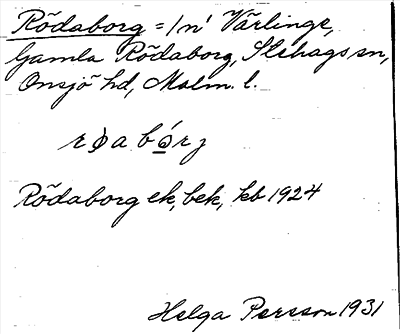 Rödaborg = 1 n' Värlinge,
Gamla Rödaborg, Stehags sn,
Onsjö hd, Malm. l.
Rödaborg ek, bek, kb 1924
Helga Persson 1931